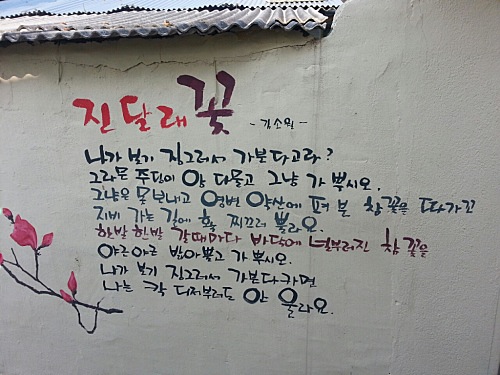 진달래꽃
-김소월-
나가 보기 징그러서 가븐다고라?
그라믄 주딩이 앙 다물고 그냥 가뿌시오.
그냥은 못보내고 영변 약산에 펴 븐 참꽃을 따가꼬
지비 가는 길에 확 찌끄러 뿔라요.
한발 한발 갈때마다 바닥에 널부러진 참꽃을
야르야르 밟아뿔고 가뿌시오.
나가 보기 징그러서 가븐다카면
나는 칵 디저부러도 안 울라요.